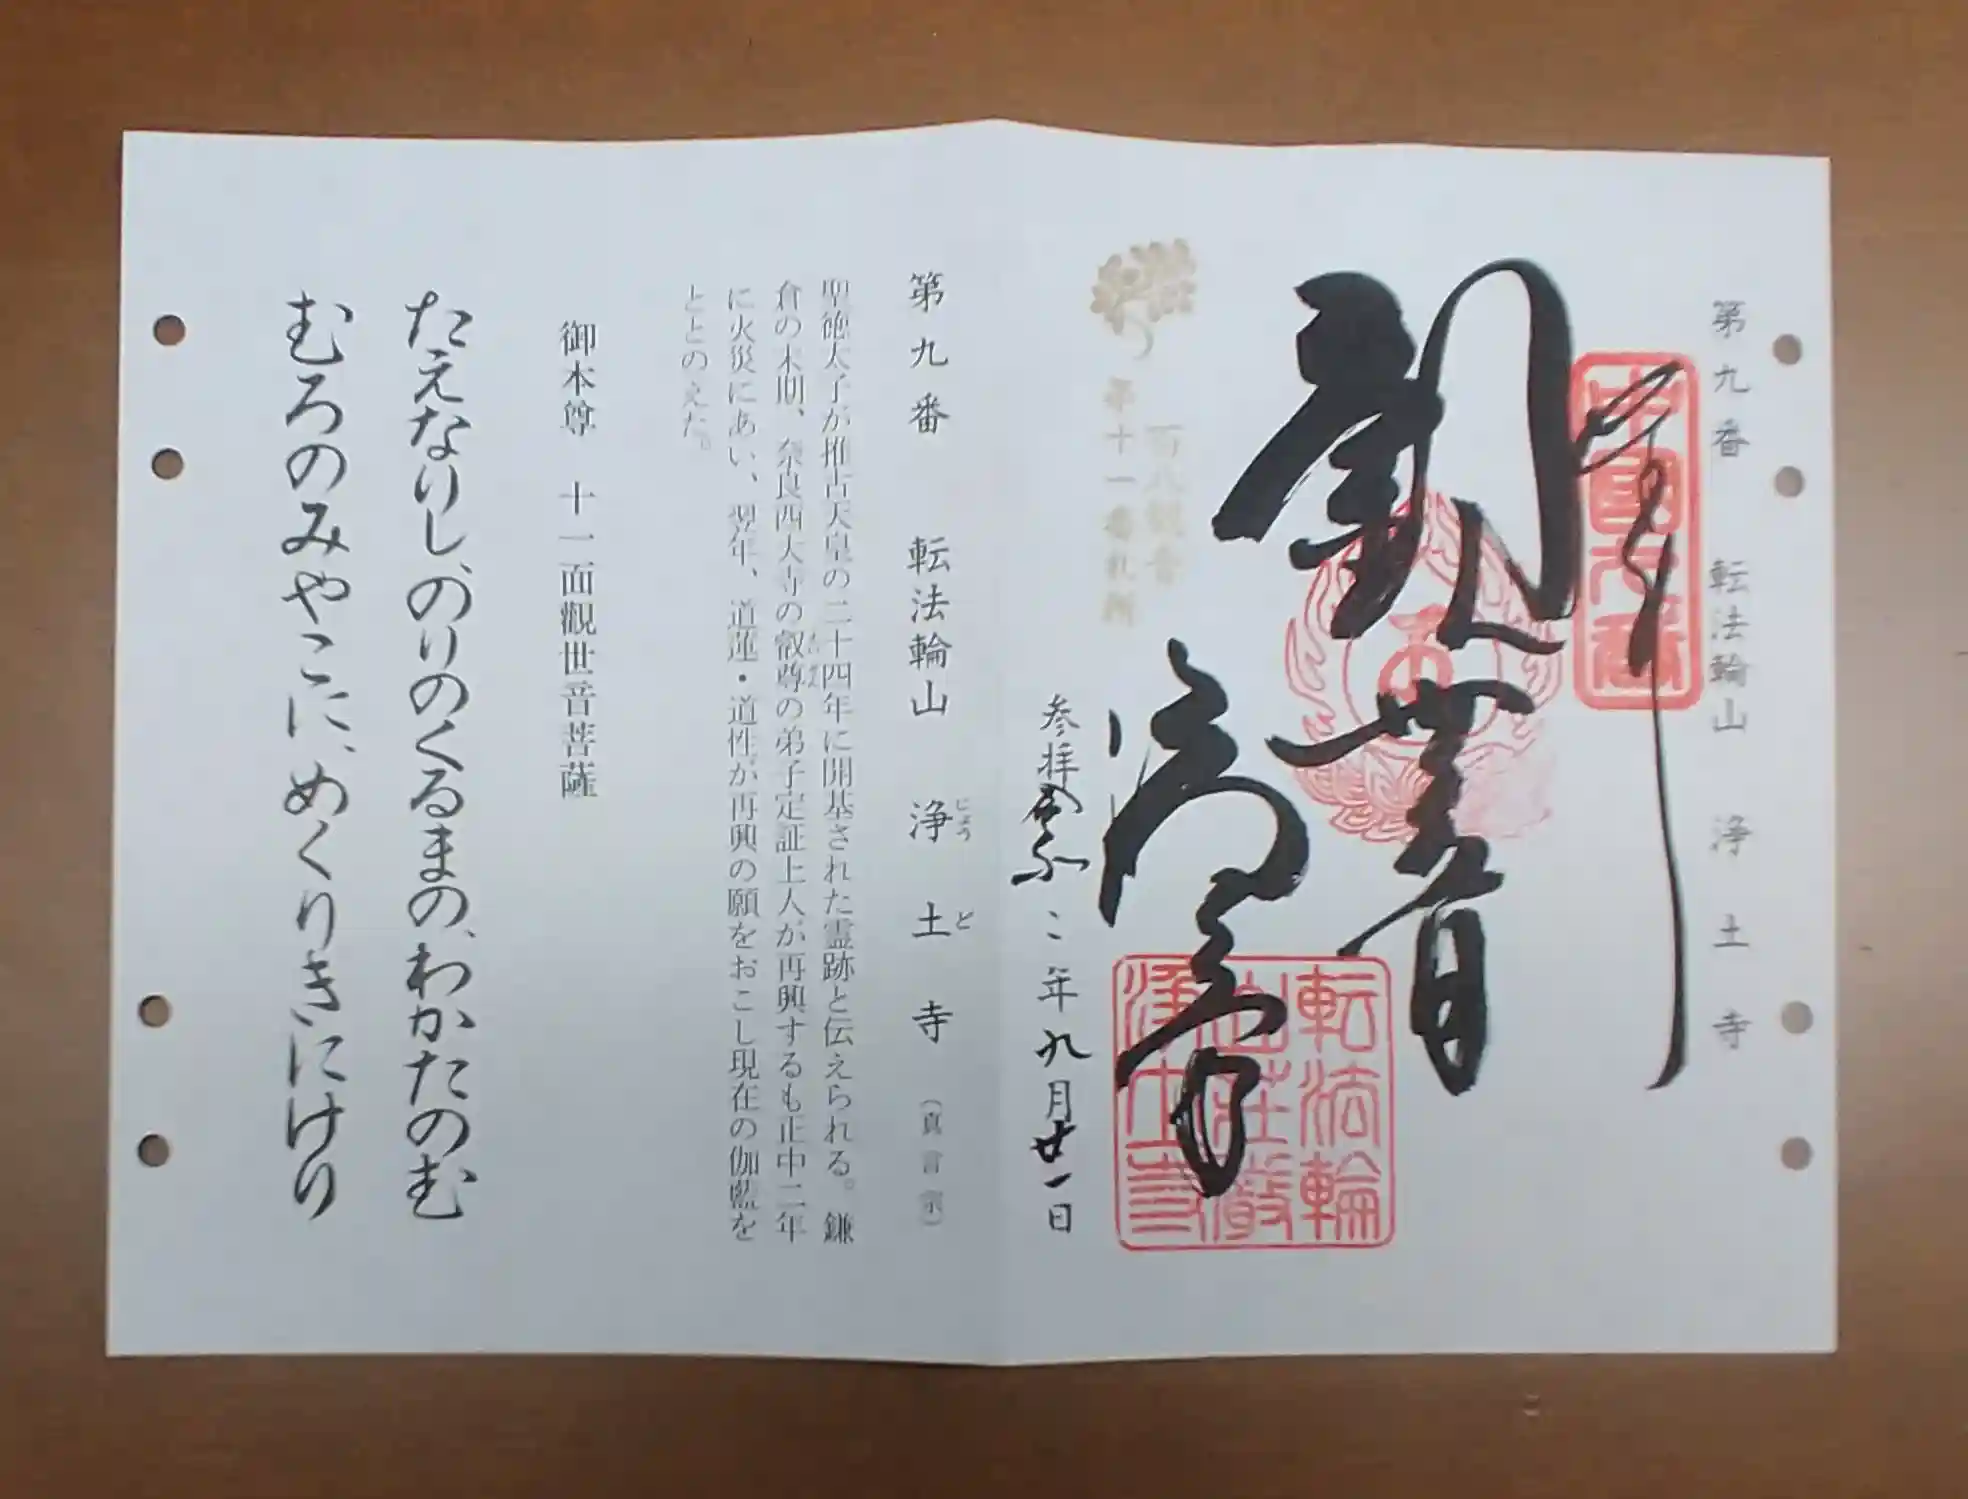 第九番　転法輪山　浄土寺
奉拝
中国九番
観世音
済寺
転法輪
山荘厳
浄土寺
百八観音
第十一番札所
参拝　令和二年九月廿一日
第九番　転法輪山　浄土寺（真言宗）
じょう　ど
聖徳太子が推古天皇の二十四年に開基された霊跡と伝えられる。鎌
倉の末期、奈良西大寺の叡尊の弟子定証上人が再興するも正中二年
えいぞん
に火災にあい、翌年、道蓮・道性が再興の願をおこし現在の伽藍を
ととのえた。
御本尊　十一面觀世音菩薩
たえなりし、のりのくるまの、わかたのむ
むろのみやこに、めくりきにけり